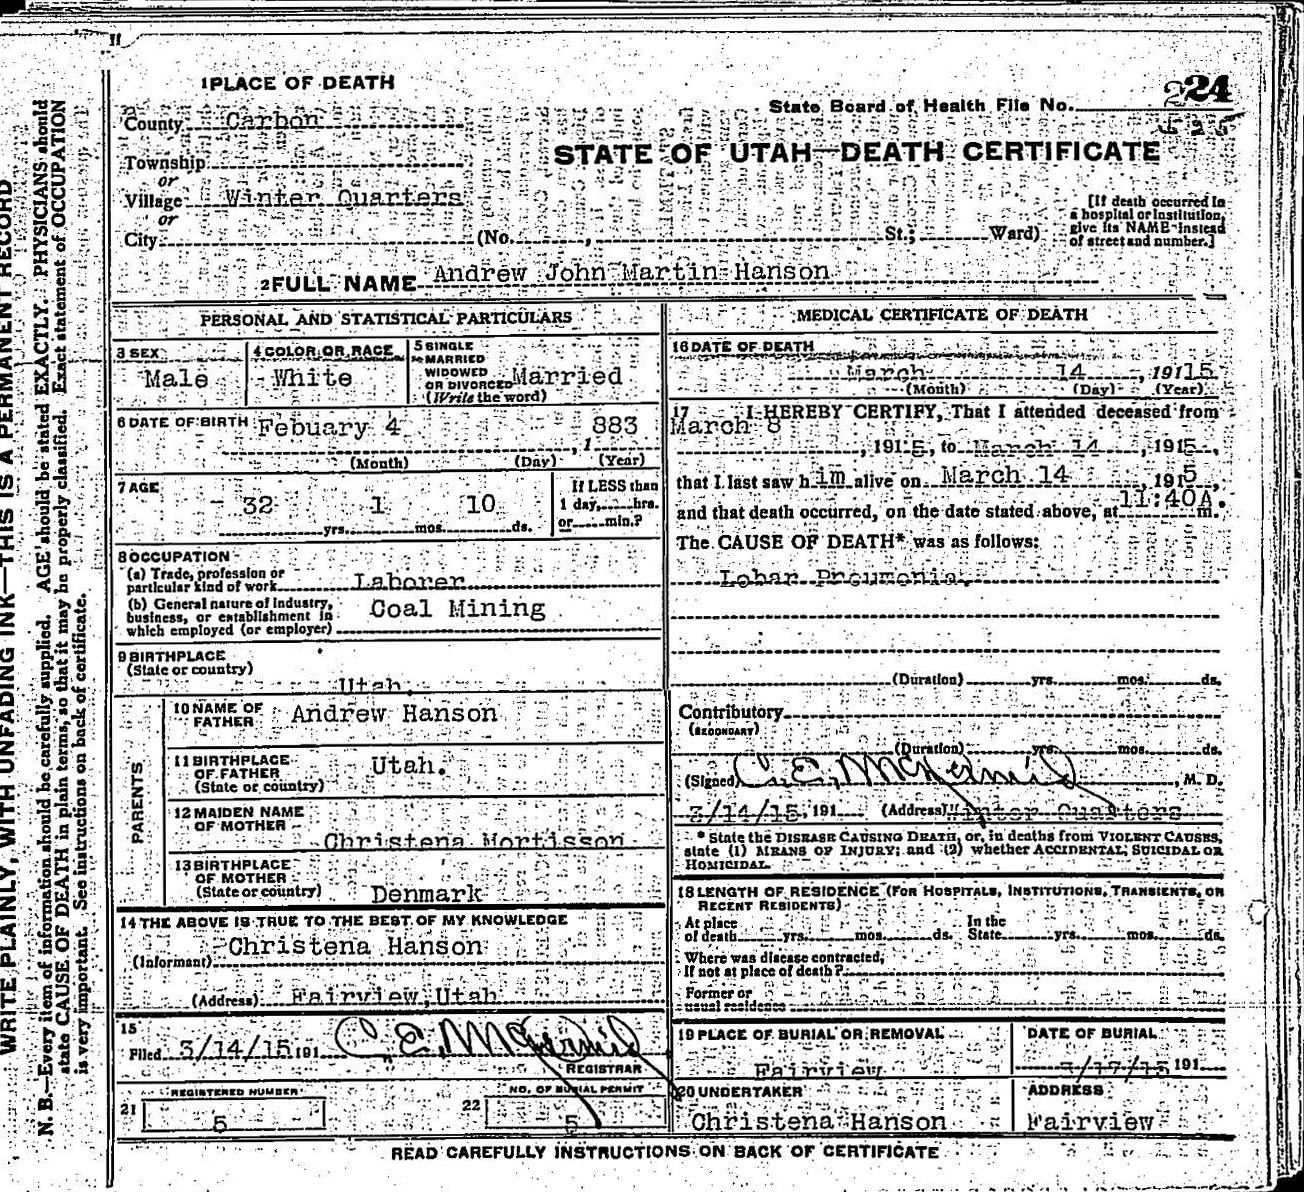 11
1 PLACE OF DEATH
224
State Board of Health File No.
County Carbon
STATE OF UTAH—DEATH CERTIFICATE
Township
or
Village Winter Quarters
or
City (No. , St.; Ward)
[If death occurred in
a hospital or institution,
give its NAME instead
of street and number.]
2 FULL NAME Andrew John Martin Hanson
PERSONAL AND STATISTICAL PARTICULARS
3 SEX
Male
4 COLOR OR RACE
White
5 SINGLE
MARRIED
WIDOWED
OR DIVORCED Married
(Write the word)
6 DATE OF BIRTH Febuary 4 , 1 883
(Month) (Day) (Year)
7 AGE
32 yrs. 1 mos. 10 ds.
If LESS than
1 day, hrs.
or min.?
8 OCCUPATION
(a) Trade, profession or
particular kind of work Laborer
(b) General nature of industry,
business, or establishment in
which employed (or employer) Coal Mining
9 BIRTHPLACE
(State or country)
Utah.
PARENTS
10 NAME OF
FATHER Andrew Hanson
11 BIRTHPLACE
OF FATHER
(State or country) Utah.
12 MAIDEN NAME
OF MOTHER
Christena Mortisson
13 BIRTHPLACE
OF MOTHER
(State or country) Denmark
14 THE ABOVE IS TRUE TO THE BEST OF MY KNOWLEDGE
(Informant) Christena Hanson
(Address) Fairview, Utah
15
Filed 3/14/15 191 C. E. McDermid
REGISTRAR
21 REGISTERED NUMBER
5
22 NO. OF BURIAL PERMIT
5
MEDICAL CERTIFICATE OF DEATH
16 DATE OF DEATH
March 14 , 19115
(Month) (Day) (Year)
17 I HEREBY CERTIFY, That I attended deceased from
March 8
, 1915, to March 14 , 1915,
that I last saw h im alive on March 14 , 1915,
and that death occurred, on the date stated above, at 11:40A. m.
The CAUSE OF DEATH* was as follows:
Lobar Pneumonia.
(Duration) yrs. mos. ds.
Contributory
(SECONDARY)
(Duration) yrs. mos. ds.
(Signed) C. E. McDermid , M. D.
3/14/15, 191 (Address) Winter Quarters
* State the DISEASE CAUSING DEATH, or, in deaths from VIOLENT CAUSES,
state (1) MEANS OF INJURY; and (2) whether ACCIDENTAL, SUICIDAL OR
HOMICIDAL.
18 LENGTH OF RESIDENCE (FOR HOSPITALS, INSTITUTIONS, TRANSIENTS, OR
RECENT RESIDENTS)
At place
of death yrs. mos. ds.
In the
State yrs. mos. ds.
Where was disease contracted,
If not at place of death?
Former or
usual residence
19 PLACE OF BURIAL OR REMOVAL
Fairview
DATE OF BURIAL
3/17/15 191
20 UNDERTAKER
Christena Hanson
ADDRESS
Fairview
READ CAREFULLY INSTRUCTIONS ON BACK OF CERTIFICATE
WRITE PLAINLY, WITH UNFADING INK—THIS IS A PERMANENT RECORD
N. B.—Every item of information should be carefully supplied. AGE should be stated EXACTLY. PHYSICIANS should
state CAUSE OF DEATH in plain terms, so that it may be properly classified. Exact statement of OCCUPATION
is very important. See instructions on back of certificate.